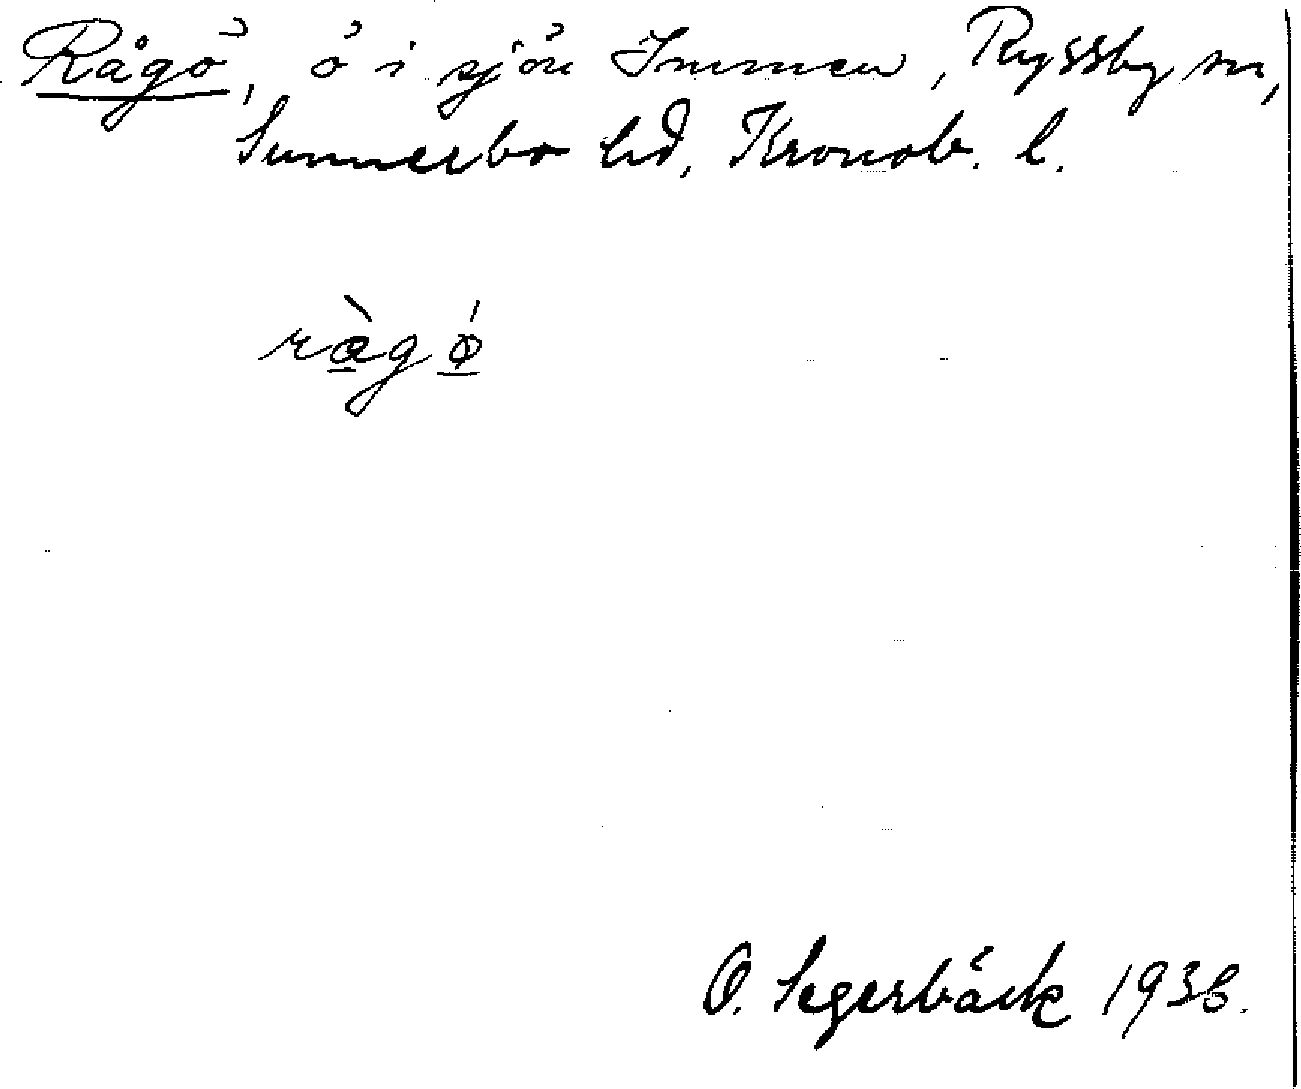 Rågö, ö i sjön Immen, Ryssby sn,
Sunnerbo hd, Kronob. l.
rågø
O. Segerbäck 1933.